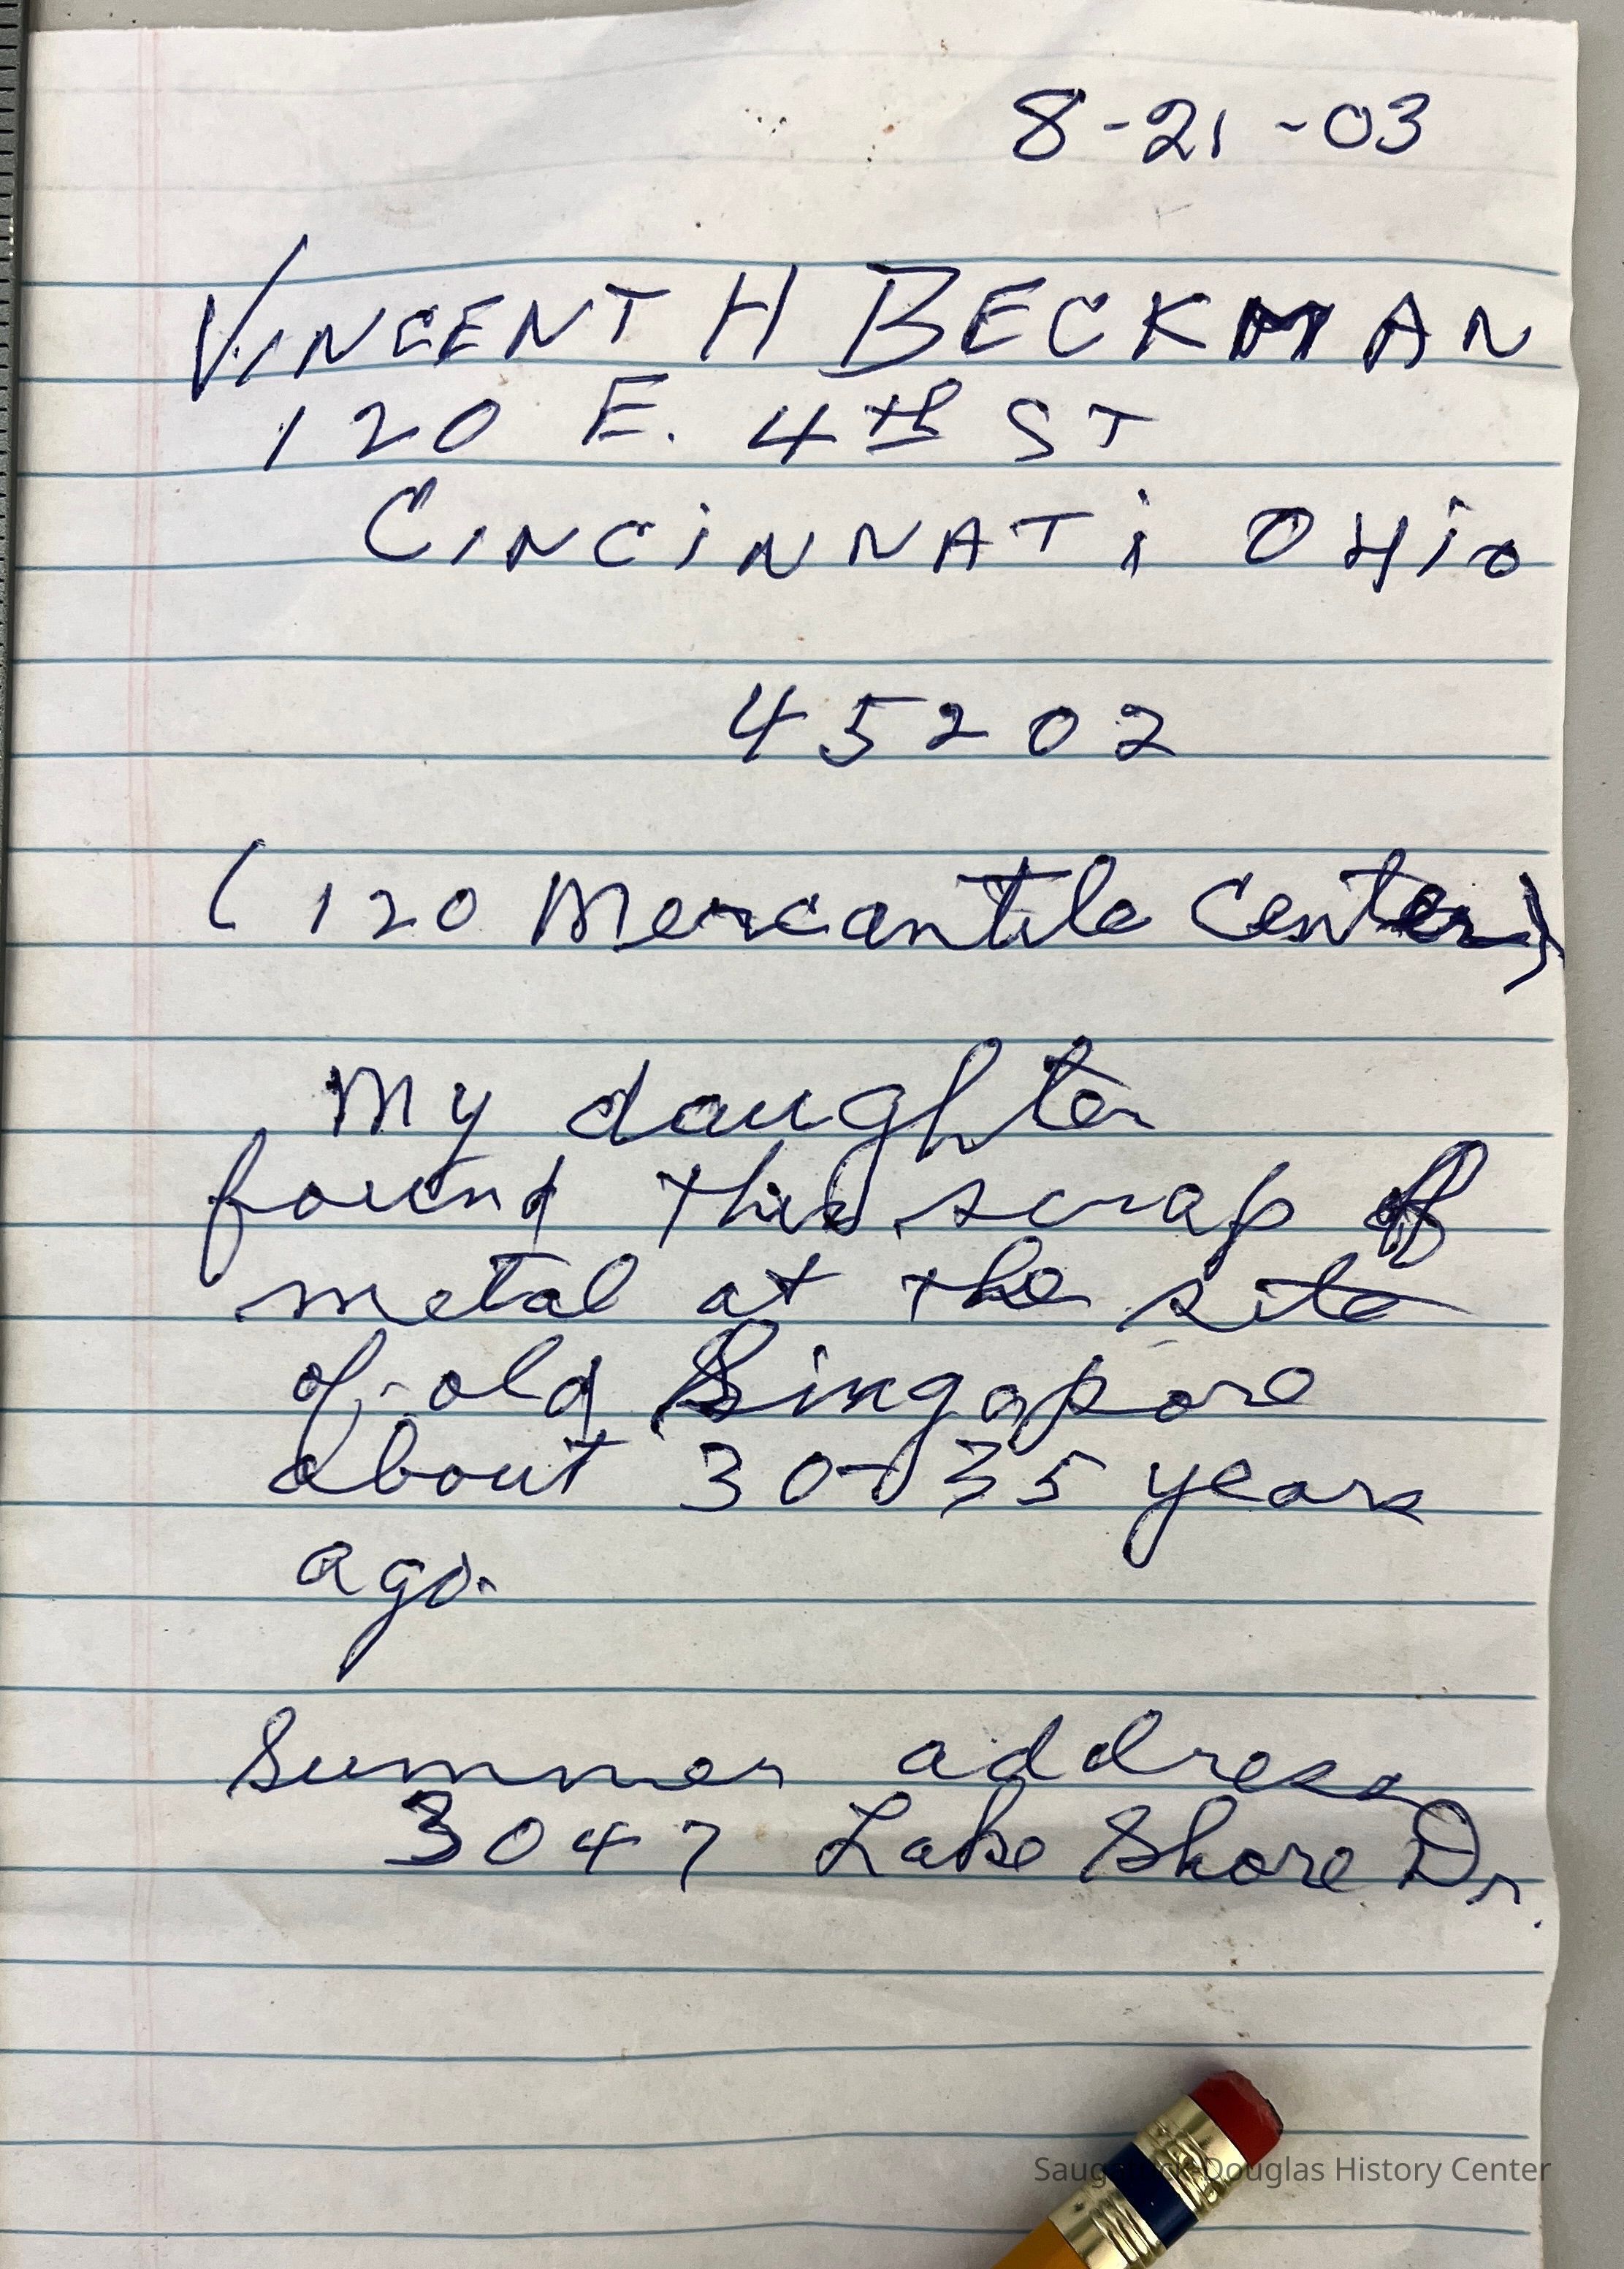 8-21-03
VINCENT H BECKMAN
120 E. 4th ST
CINCINNATI OHIO
45202
(120 Mercantile Center)
My daughter
found this scrap of
metal at the site
of old Singapore
about 30-35 years
ago.
Summer address
3047 Lake Shore Dr.
Saugatuck-Douglas History Center